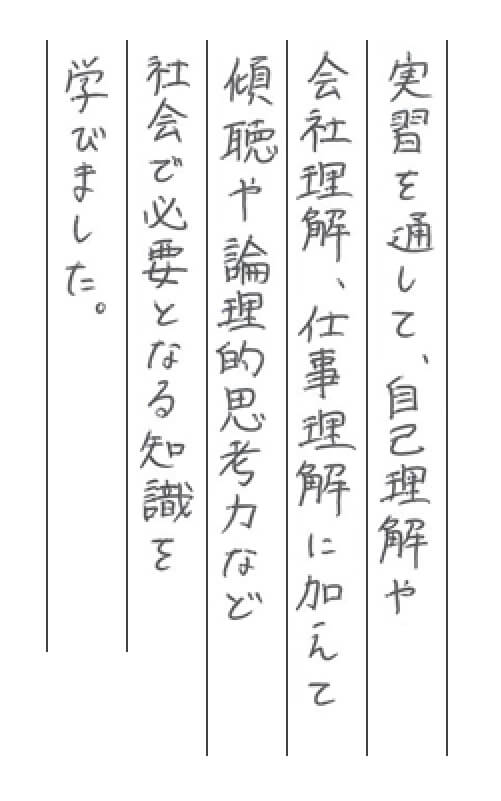 実習を通して、自己理解や
会社理解、仕事理解に加えて
傾聴や論理的思考力など
社会で必要となる知識を
学びました。